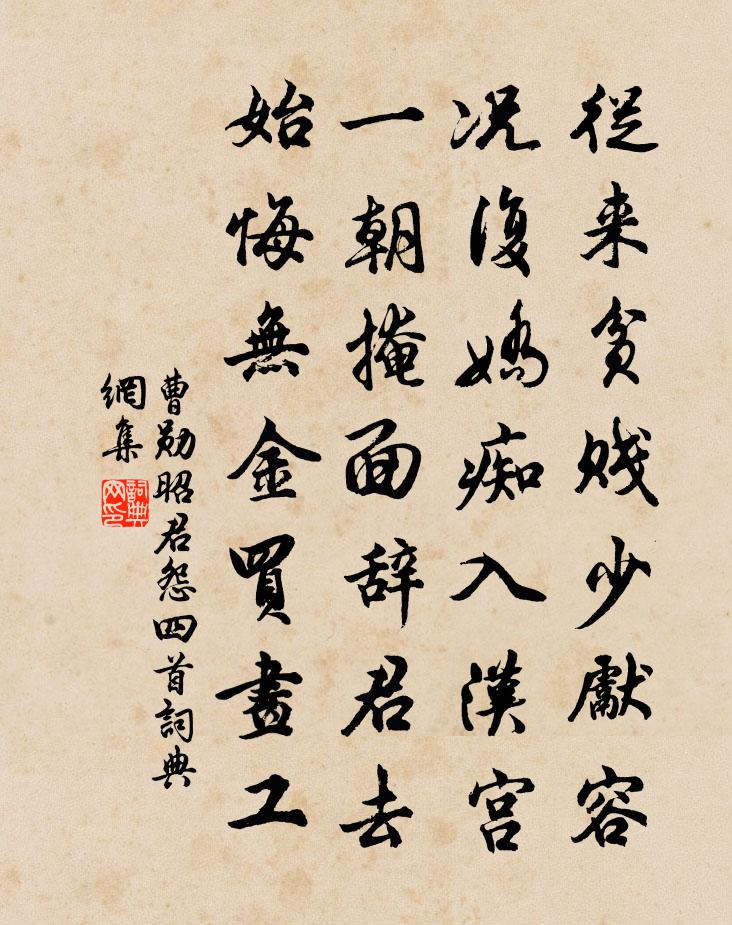 從来貧賤少獻容
况復嬌痴入漢宮
一朝掩面辞君去
始悔無金買畫工
曹勛昭君怨四首詞典
網集
詞典
网印